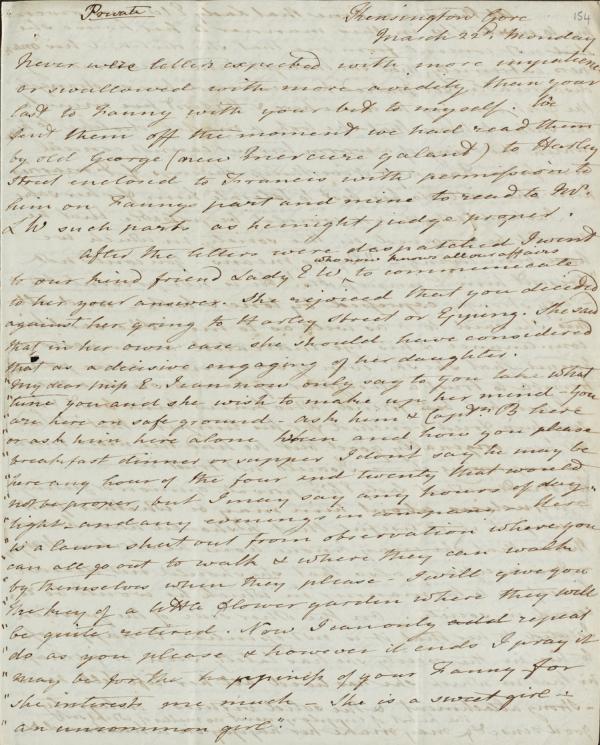 Private
Kensington Gore
154
March 22d. Monday
Never were letters expected with more impatience
or swallowed with more avidity than your
last to Fanny with your last to myself. We
sent them off the moment we had read them
by old George (new Mercure galant) to Harley
Street enclosed to Francis with permission to
him on Fanny's part and mine to read to Mr.
LW such parts as he might judge proper.
After the letters were despatched I went
who now knows all our affairs
to our kind friend Lady E W, to communicate
to her your answer. She rejoiced that you decided
against her going to Harley Street or Epping. She said
that in her own case she should have considered
that as a decisive engaging of her daughter.
"My dear Miss E I can now only say to you take what
"time you and she wish to make up her mind - You
are here on safe ground - ask him & Captn B here
or ask him here alone when and how you please
breakfast dinner or supper. I don't say he may be
here any hour of the four and twenty that would
not be proper, but I may say any hours of day
"light - and any evenings in company. Here
"is a lawn shut out from observation where you
can all go out to walk & where they can walk
by themselves when they please - I will give you
the key of a little flower garden where they will
be quite retired. Now I can only add repeat
do as you please & however it ends I pray it
"may be for the happiness of your Fanny for
"she interests me much - She is a sweet girl -
"an uncommon girl".